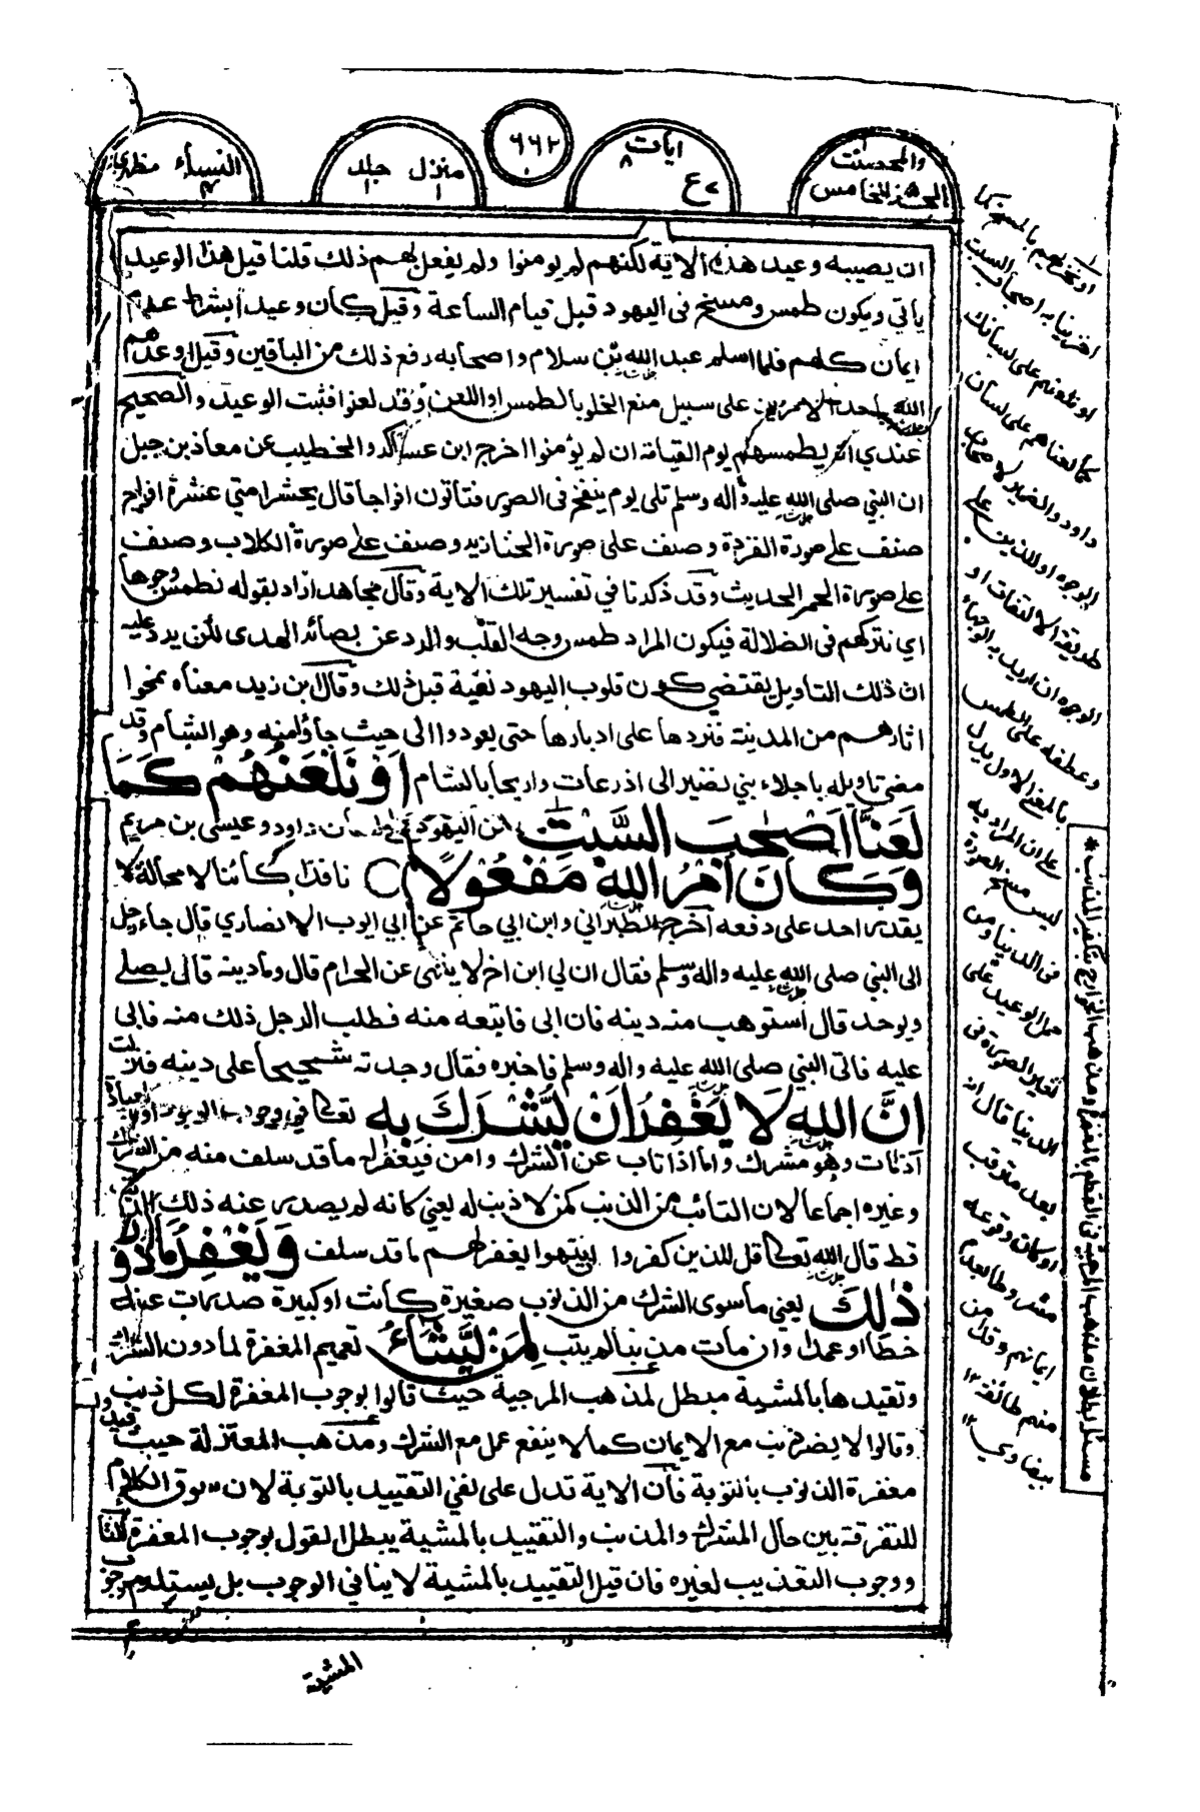 والمحصنت
الجزء الخامس
ايات ٨
ع ٧
٦٦٢
منزل ١ جلد ١
النساء ٤ مظهري
ان يصيبه وعيد هذه الاية لكنهم لم يومنوا ولم يفعل بهم ذلك قلنا قيل هذا الوعيد
ياتي ويكون طمس ومسخ فى اليهود قبل قيام الساعة وقيل كان وعيد ابشرط عدم
ايمان كلهم فلما اسلم عبد الله بن سلام واصحابه رفع ذلك من الباقين وقيل اوعدهم
الله باحد الامرين على سبيل منع الخلو بالطمس او اللعن وقد لعنوا فثبت الوعيد والصحيح
عندي انه يطمسهم يوم القيامة ان لم يؤمنوا اخرج ابن عساكر والخطيب عن معاذ بن جبل
ان النبي صلى الله عليه واله وسلم تلى يوم ينفخ فى الصور فتأتون افواجا قال يحشر امتي عشرة افواج
صنف على صورة القردة وصنف على صورة الخنازير وصنف على صورة الكلاب وصنف
على صورة الحمر الحديث وقد ذكرنا في تفسير تلك الاية وقال مجاهد اراد بقوله نطمس وجوها
اي نتركهم فى الضلالة فيكون المراد طمس وجه القلب والرد عن بصائر الهدى لكن يرد عليه
ان ذلك التاويل يقتضي كون قلوب اليهود نقية قبل ذلك وقال ابن زيد معناه نمحوا
اثارهم من المدينة فنردها على ادبارها حتى يعودوا الى حيث جاؤا منه وهو الشام وقد
مضى تاويله باجلاء بني نضير الى اذرعات واريحا بالشام اَوْ نَلْعَنَهُمْ كَمَا
لَعَنَّا اَصْحٰبَ السَّبْتِ اى اليهود على لسان داود وعيسى بن مريم
وَكَانَ اَمْرُ اللهِ مَفْعُوْلًا ○ نافذا كائنا لا محالة لا
يقدر احد على دفعه اخرج الطبراني وابن ابي حاتم عن ابي ايوب الانصاري قال جاء رجل
الى النبي صلى الله عليه واله وسلم فقال ان لي ابن اخ لا ينتهى عن الحرام قال وما دينه قال يصلے
ويوحد قال استوهب منه دينه فان ابى فابتعه منه فطلب الرجل ذلك منه فابى
عليه فاتى النبي صلى الله عليه واله وسلم فاخبره فقال وجدته شحيحا على دينه فنزلت
اِنَّ اللهَ لَا يَغْفِرُ اَنْ يُّشْرَكَ بِهٖ تعالى في وجوب الوجود او العبادة
اذا مات وهو مشرك واما اذا تاب عن الشرك وامن فيغفر له ما قد سلف منه من الشرك
وغيره اجماعا لان التائب من الذنب كمن لا ذنب له يعني كانه لم يصدر عنه ذلك الذنب
قط قال الله تعالى قل للذين كفروا ان ينتهوا يغفر لهم ما قد سلف وَيَغْفِرُ مَا دُوْنَ
ذٰلِكَ يعني ما سوى الشرك من الذنوب صغيرة كانت او كبيرة صدرت عنه
خطأ او عمدا وان مات مذنبا لم يتب لِمَنْ يَّشَآءُ تعميم المغفرة لما دون الشرك
وتقييدها بالمشية مبطل لمذهب المرجية حيث قالوا بوجوب المغفرة لكل ذنب
وقالوا لا يضر ذنب مع الايمان كما لا ينفع عمل مع الشرك ومذهب المعتزلة حيث قيدوا
مغفرة الذنوب بالتوبة فان الاية تدل على نفي التقييد بالتوبة لان سوق الكلام
للتفرقة بين حال المشرك والمذنب والتقييد بالمشية يبطل القول بوجوب المغفرة للتائب
ووجوب التعذيب لغيره فان قيل التقييد بالمشية لا ينافي الوجوب بل يستلزم وجوب
المشية
او نخزيهم بالمسخ كما
اخزينا به اصحاب السبت
او نلعنهم على لسانك
كما لعناهم على لسان
داود والضمير لاصحاب
الوجوه او للذين على
طريقة الالتفات او
الوجوه ان اريد به الوجهاء
وعطفه على الطمس
بالمعنى الاول يدل
على ان المراد به
ليس مسخ الصورة
فى الدنيا ومن
حمل الوعيد على
تغير الصورة فى
الدنيا قال انه
بعد مترقب
او كان وقوعه
مشروطا بعدم
ايمانهم وقد امن
منهم طائفة ١٢
بيضاوي ١٢
مسئلہ بطلان مذهب المرجية في القطع بالمغفرة ومذهب الخوارج بتكفير المذنب *